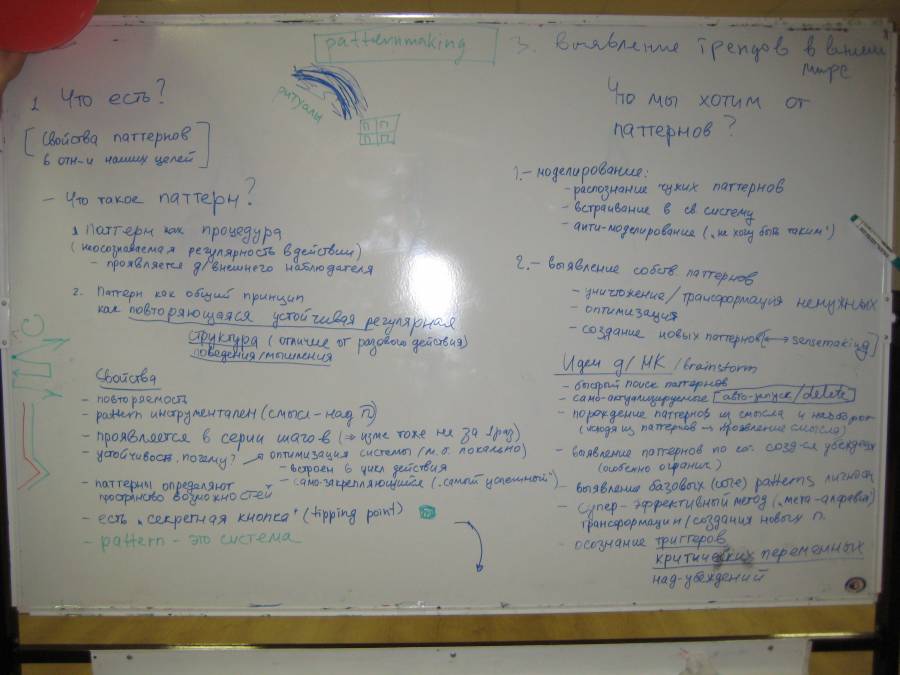 patternmaking
ритуалы
п п
п п
1 Что есть?
[Свойства паттернов
в отн-и наших целей]
- Что такое паттерн?
1 Паттерн как процедура
(неосознаваемая регулярность в действии)
- проявляется д/внешнего наблюдателя
2. Паттерн как общий принцип
как повторяющаяся устойчивая регулярная
структура (отличие от разового действия)
поведения/мышления
Свойства
- повторяемость
- pattern инструментален (смысл - над п)
- проявляется в серии шагов (⇒ изм-е тоже не за 1 раз)
- устойчивость. почему? → оптимизация системы (м.б. локально)
- встроен в цикл действия
- само-закрепляющийся ("самый успешный")
- паттерны определяют
пространство возможностей
- есть "секретная кнопка" (tipping point)
- pattern - это система
3. Выявление трендов в вашем
мире
Что мы хотим от
паттернов?
1.- моделирование:
- распознание чужих паттернов
- встраивание в св. систему
- анти-моделирование ("не хочу быть таким")
2.- выявление собств паттернов
- уничтожение/трансформация ненужных
- оптимизация
- создание новых паттернов [↔ sensemaking]
Идеи д/МК /brainstorm
- быстрый поиск паттернов
- само-актуализируемые авто-запуск/delete
- порождение паттернов из смысла и наоборот
(исходя из паттернов → проявление смысла)
- выявление паттернов по кот. созд-ся убеждения
(особенно огранич.)
- выявление базовых (core) patterns личности
- супер-эффективный метод ("мета-алфавит")
трансформации/создания новых п.
- осознание триггеров
критических переменных
над-убеждений